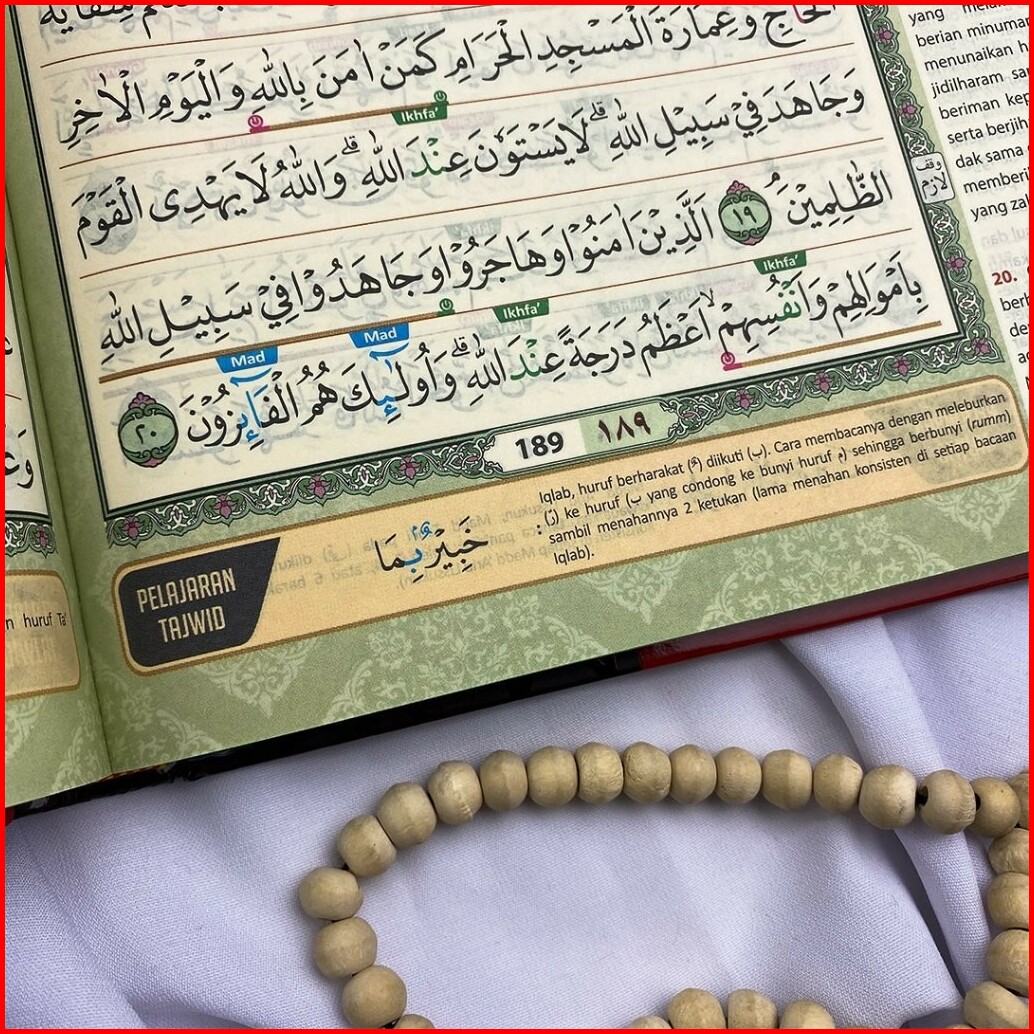 الْحَاجِّ وَعِمَارَةَ الْمَسْجِدِ الْحَرَامِ كَمَنْ اٰمَنَ بِاللّٰهِ وَالْيَوْمِ الْاٰخِرِ
Ikhfa'
وَجَاهَدَ فِيْ سَبِيْلِ اللّٰهِ ۗ لَا يَسْتَوٗنَ عِنْدَ اللّٰهِ ۗ وَاللّٰهُ لَا يَهْدِى الْقَوْمَ
الظّٰلِمِيْنَ ۘ ١٩ اَلَّذِيْنَ اٰمَنُوْا وَهَاجَرُوْا وَجَاهَدُوْا فِيْ سَبِيْلِ اللّٰهِ
Ikhfa' Ikhfa' Mad Mad
بِاَمْوَالِهِمْ وَاَنْفُسِهِمْۙ اَعْظَمُ دَرَجَةً عِنْدَ اللّٰهِ ۗ وَاُولٰۤىِٕكَ هُمُ الْفَاۤىِٕزُوْنَ ٢٠
189 ١٨٩
وقف
لازم
PELAJARAN
TAJWID
خَبِيْرٌۢ بِمَا
:
Iqlab, huruf berharakat (ـٌ) diikuti (ب). Cara membacanya dengan meleburkan
(ن) ke huruf (ب yang condong ke bunyi huruf م) sehingga berbunyi (rumm)
sambil menahannya 2 ketukan (lama menahan konsisten di setiap bacaan
Iqlab).
yang
berian minuman
menunaikan h
jidilharam
beriman
serta berjih
dak sama
memberi
yang zal
20.
n huruf Ta'